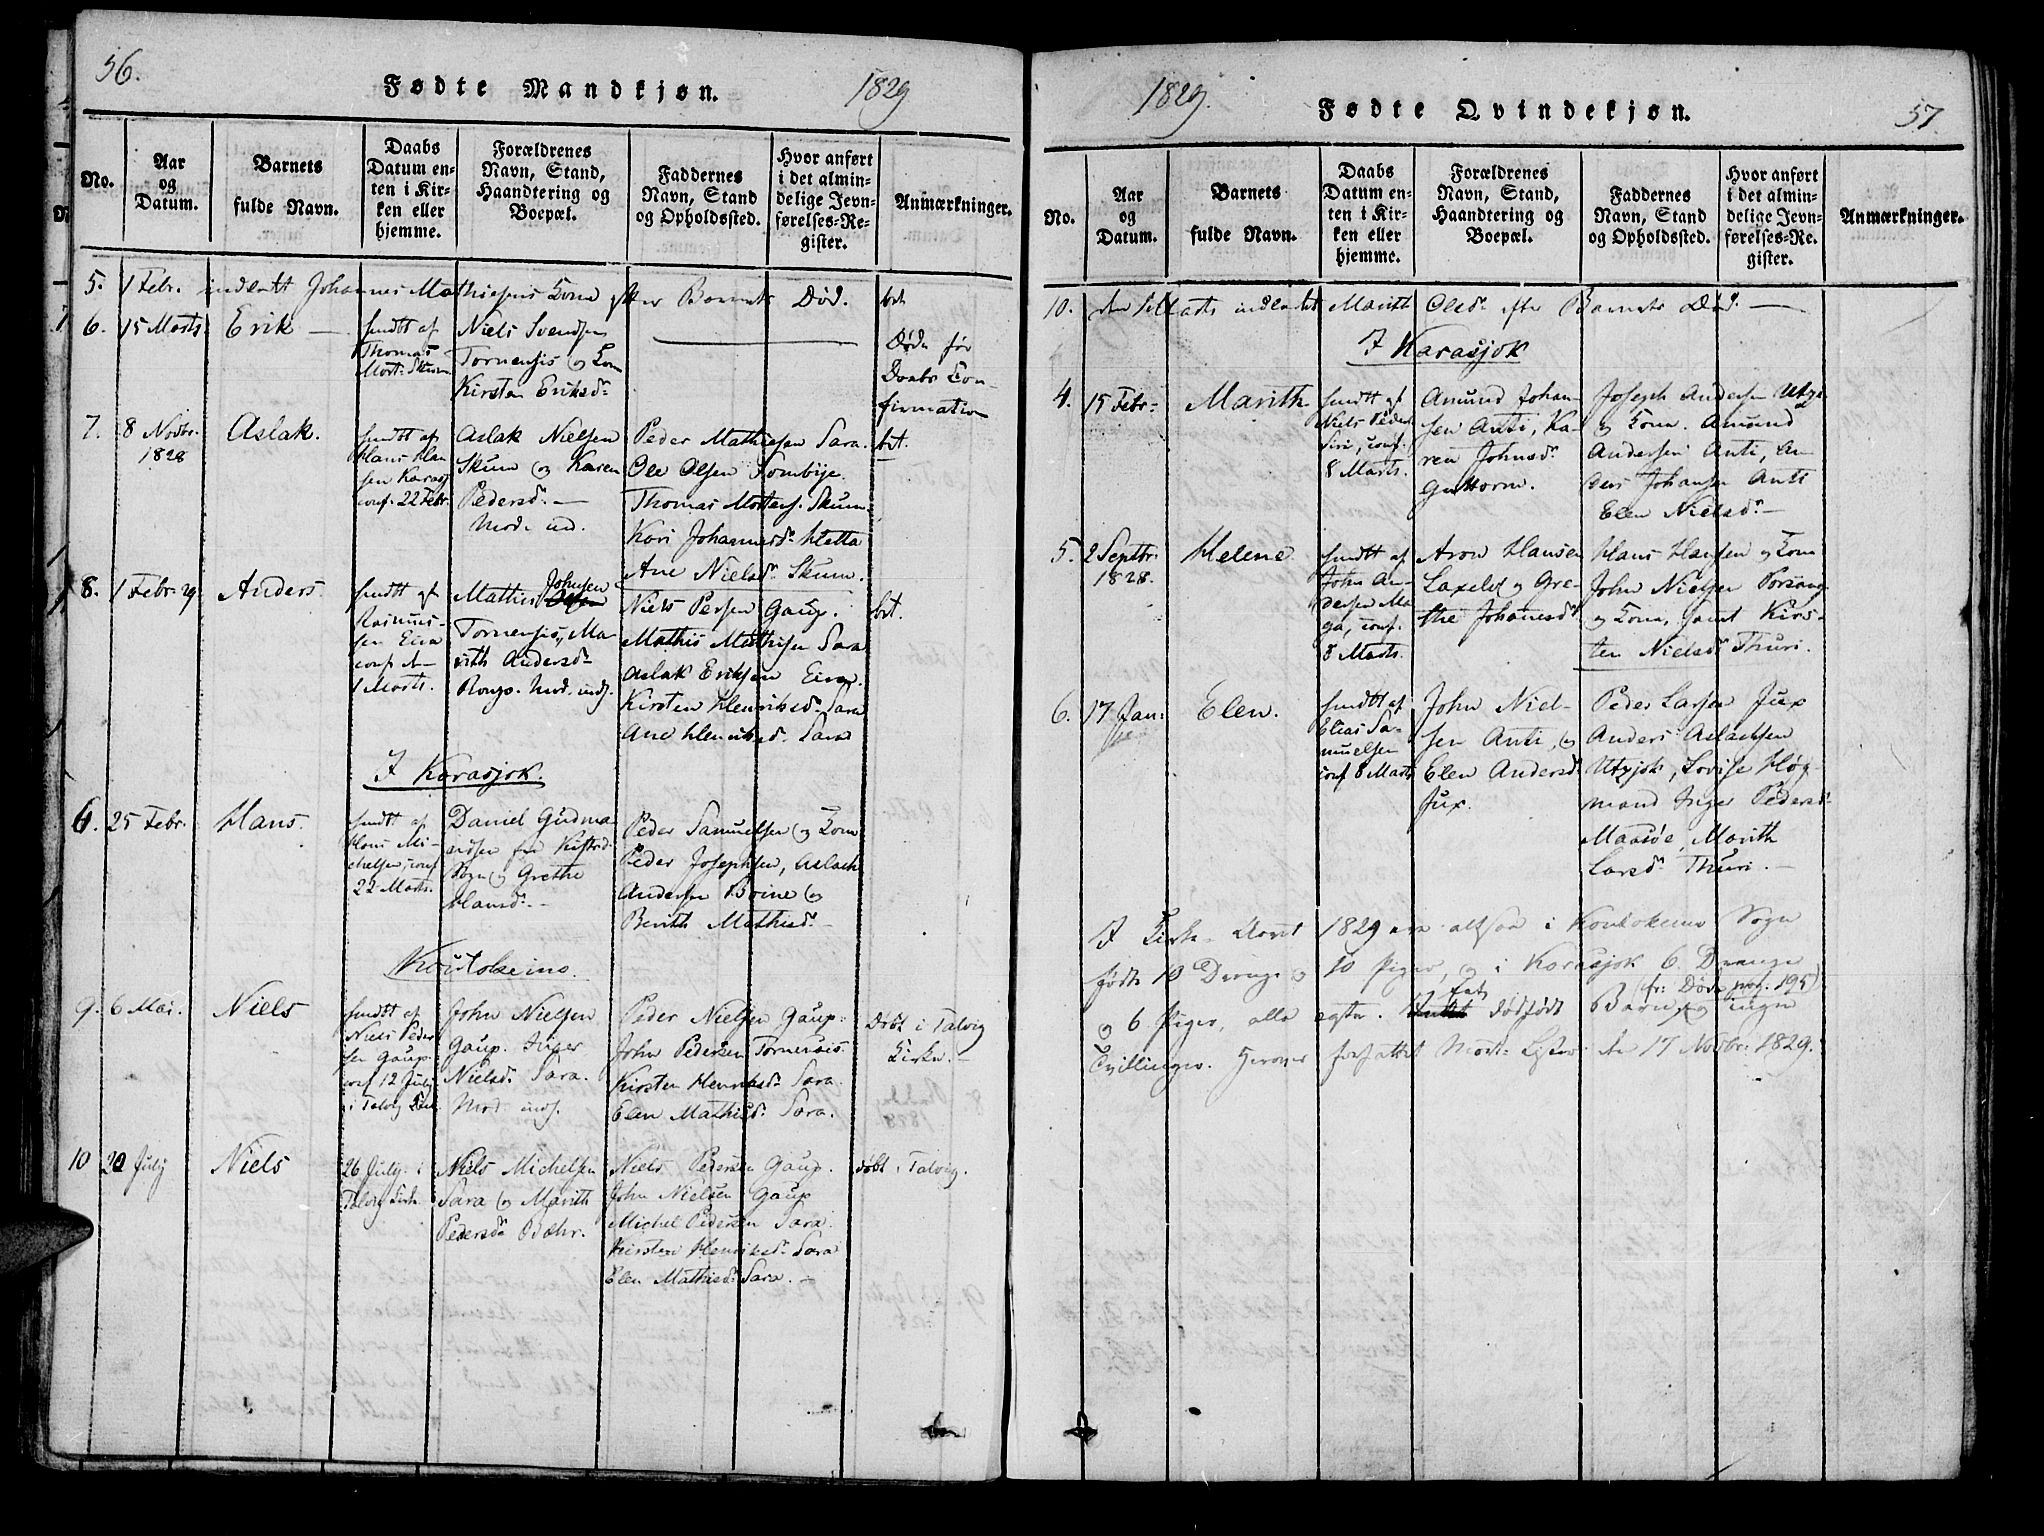 56.
Fødte Mandkjøn.
1829
No.
Aar
og
Datum.
Barnets
fulde Navn.
Daabs
Datum en-
ten i Kir-
ken eller
hjemme.
Forældrenes
Navn, Stand,
Haandtering og
Boepæl.
Faddernes
Navn, Stand
og Opholdssted.
Hvor anført
i det almin-
delige Jevn-
førelses-Re-
gister.
Anmærkninger.
5. 1 Febr. indledt Johannes Mathisens Kone efter Barnets Død.
6. 15 Marts
Erik —
hmdt af
Thomas
Mort: Skum
Niels Svendsen
Tornensis og Kone
Kirsten Eriksd.
Døde før
Daabs Con-
firmation
7. 8 Novbr.
1828
Aslak.
hmdt af
Hans Han
sen Karasj
conf. 22 Febr.
Aslak Nielsen
Skum og Karen
Pedersd. —
Mod. ind.
Peder Mathisen Sara.
Ole Olsen Sombye.
Thomas Mortens. Skum
Kari Johannesd. Hetta
Ane Nielsd. Skum.
8. 1 Febr. 29.
Anders.
hmdt af
Rasmus-
sen Eira
conf.
1 Marts.
Mathis Johnsen
Tornensis, Ma-
rith Andersd.
Rongo. Mod. inds.
Niels Persen Gaup.
Mathis Mathisen Sara
Aslak Eriksen Eira.
Kirsten Henriksd. Sara
Ane Henriksd. Sara
I Karasjok.
6. 25 Febr.
Hans.
hmdt af
Hans Mi-
chelsen, conf
22 Marts.
Daniel Gudma
ndsen fra Kistrd
Sogn og Grethe
Hansd. —
Peder Samuelsen og Kone
Peder Josephsen, Aslach
Andersen Boine og
Berith Mathisd. —
Koutokeino.
9. 6 Mai.
Niels
hmdt af
Niels Peder
sen Gaup.
conf 12 July
i Talvig Kirk.
John Nielsen
Gaup. Inger
Nielsd. Sara.
Mod. inds.
Peder Nielsen Gaup.
John Pedersen Tornensis.
Kirsten Henriksd. Sara.
Elen Mathisd. Sara.
Døbt i Talvig
Kirke. —
10 20 July
Niels
26 July i
Talvig Kirk.
Niels Michelsen
Sara og Marith
Pedersd. Bæhr.
Niels Pedersen Gaup.
John Nielsen Gaup
Michel Pedersen Sara.
Kirsten Henriksd. Sara
Elen Mathisd. Sara. —
døbt i Talvig.
1829.
Fødte Qvindekjøn.
57.
No.
Aar
og
Datum.
Barnets
fulde Navn.
Daabs
Datum en-
ten i Kir-
ken eller
hjemme.
Forældrenes
Navn, Stand,
Haandtering og
Boepæl.
Faddernes
Navn, Stand
og Opholdssted.
Hvor anført
i det almin-
delige Jevn-
førelses-Re-
gister.
Anmærkninger.
10. den Marts indledet Marith Olsd. efter Barnets Død. —
I Karasjok
4. 15 Febr.
Marith
hmdt af
Niels Peder
Siri, conf.
8 Marts.
Amund Johan-
sen Anti, Ka-
ren Johnsd.
Guttorm.
Joseph Andersen Utsjo
og Kone. Amund
Andersen Anti, An-
ders Johansen Anti
Elen Nielsd. —
5. 2 Septbr.
1828.
Helene
hmdt af
John An-
dersen Ma-
ga, conf.
8 Marts.
Aron Hansen
Laxeld og Gre-
the Johanesd.
Hans Hansen og Kone
John Nielsen Porsang
og Kone, samt Kirs-
ten Nielsd. Thuri.
6. 17 Jan:
Elen.
hmdt af
Elias Sa-
muelsen
conf 8 Marts
John Niel-
sen Anti, og
Elen Andersd.
Jux.
Peder Larsen Jux
Anders Aslachsen
Utzjok, Lovise Høg-
mand Inger Pedersd.
Maasøe, Marith
Larsd. Thuri. —
I Kirke-Aaret 1829 ere altsaa i Koutokeino Sogn
fødte 10 Drenge og 10 Piger, og i Karasjok 6. Drenge
og 6 Piger, alle ægte. 1 dødfødt Barn, og ingen
(fr: Døde pag. 195)
Tvillinger. Herover forfattet Mort: Lister den 17 Novbr: 1829.